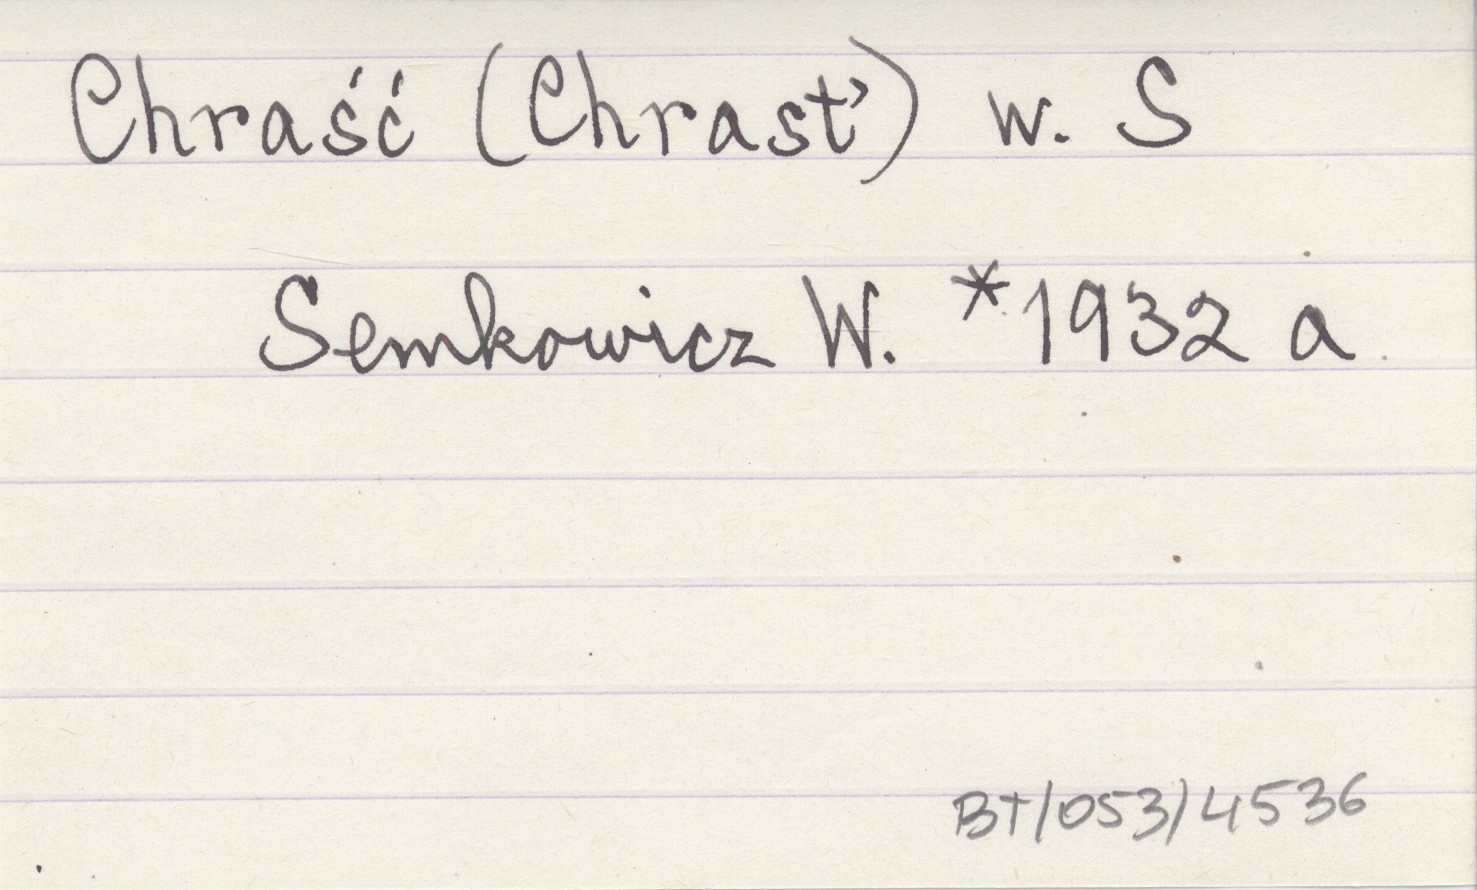 Chraść (Chrasť) w. S
Semkowicz W. *1932 a
BT/053/4536